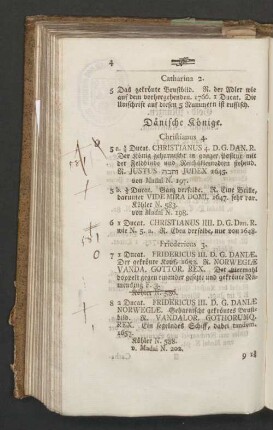 4
Catharina 2.
5 Das gekrönte Brustbild. R. der Adler wie
auf dem vorhergehenden. 1766. 1 Ducat. Die
Umschrift auf diesen 5 Nummern ist russisch.
Dänische Könige.
Christianus 4.
Ducat. CHRISTIANUS 4. D.G. DAN. R.
Der König geharnischt in ganzer Positur mit
der Feldbinde und Reichsinsignien stehend.
R. JUSTUS JUDEX 1645.
von Madai N. 297.
Ducat. Ganz dieselbe. R. Eine Brille,
darunter VIDE MIRA DOMI. 1647. sehr rar.
Köhler N. 583.
von Madai N. 198.
6 1 Ducat. CHRISTIANUS III. D. G. Dan. R.
wie N. 5. a. R. Eben derselbe, nur von 1648.
Fridericus 3.
7 1 Ducat. FRIDERICUS III. D. G. DANIÆ.
Der gekrönte Kopf. R. NORWEGIÆ
VANDA. GOTTOR. REX. Der
doppelt gegen einander gesetzt und gekrönte Na-
Köhler N. 586.
8 2 Ducat. FRIDERICUS III. D. G. DANIÆ
NORWEGIÆ. Geharnischt gekröntes Brust-
bild. R. VANDALOR. GOTHORUMQ.
REX. Ein segelndes Schiff, dabei
1657.
Köhler N. 588.
v. Madai N. 200.